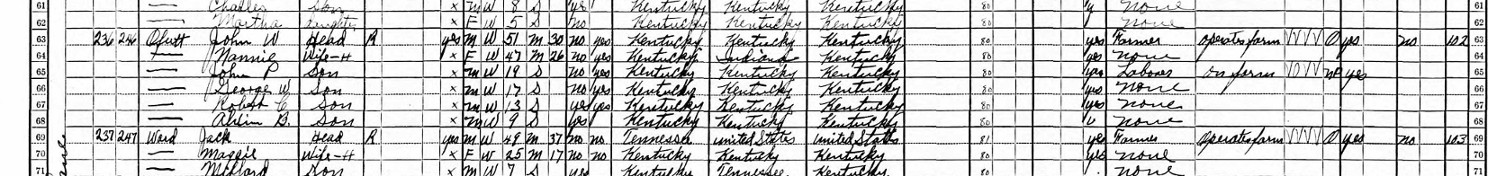 61 — Charles Son × M W 8 S yes Kentucky Kentucky Kentucky 80 None 61
62 — Martha daughter × F W 5 S no Kentucky Kentucky Kentucky 80 None 62
63 236 246 Offutt John W Head R yes M W 51 M 30 no yes Kentucky Kentucky Kentucky 80 yes Farmer operates farm VVV O yes no 102 63
64 — Nannie Wife-H × F W 47 M 26 no yes Kentucky Indiana Kentucky 80 yes none 64
65 — John P Son × M W 19 S no yes Kentucky Kentucky Kentucky 80 yes Laborer on farm VVV NP yes 65
66 — George W Son × M W 17 S no yes Kentucky Kentucky Kentucky 80 yes None 66
67 — Robert C Son × M W 13 S yes yes Kentucky Kentucky Kentucky 80 yes None 67
68 — B. Son × M W 9 S yes Kentucky Kentucky Kentucky 80 None 68
69 237 247 Ward Jack Head R yes M W 49 M 37 no no Tennessee United States United States 81 yes Farmer Operates farm VVV O yes no 103 69
70 — Maggie Wife-H × F W 25 M 17 no no Kentucky Kentucky Kentucky 80 yes none 70
71 — Millard Son × M W 7 S yes Kentucky Tennessee Kentucky 80 none 71